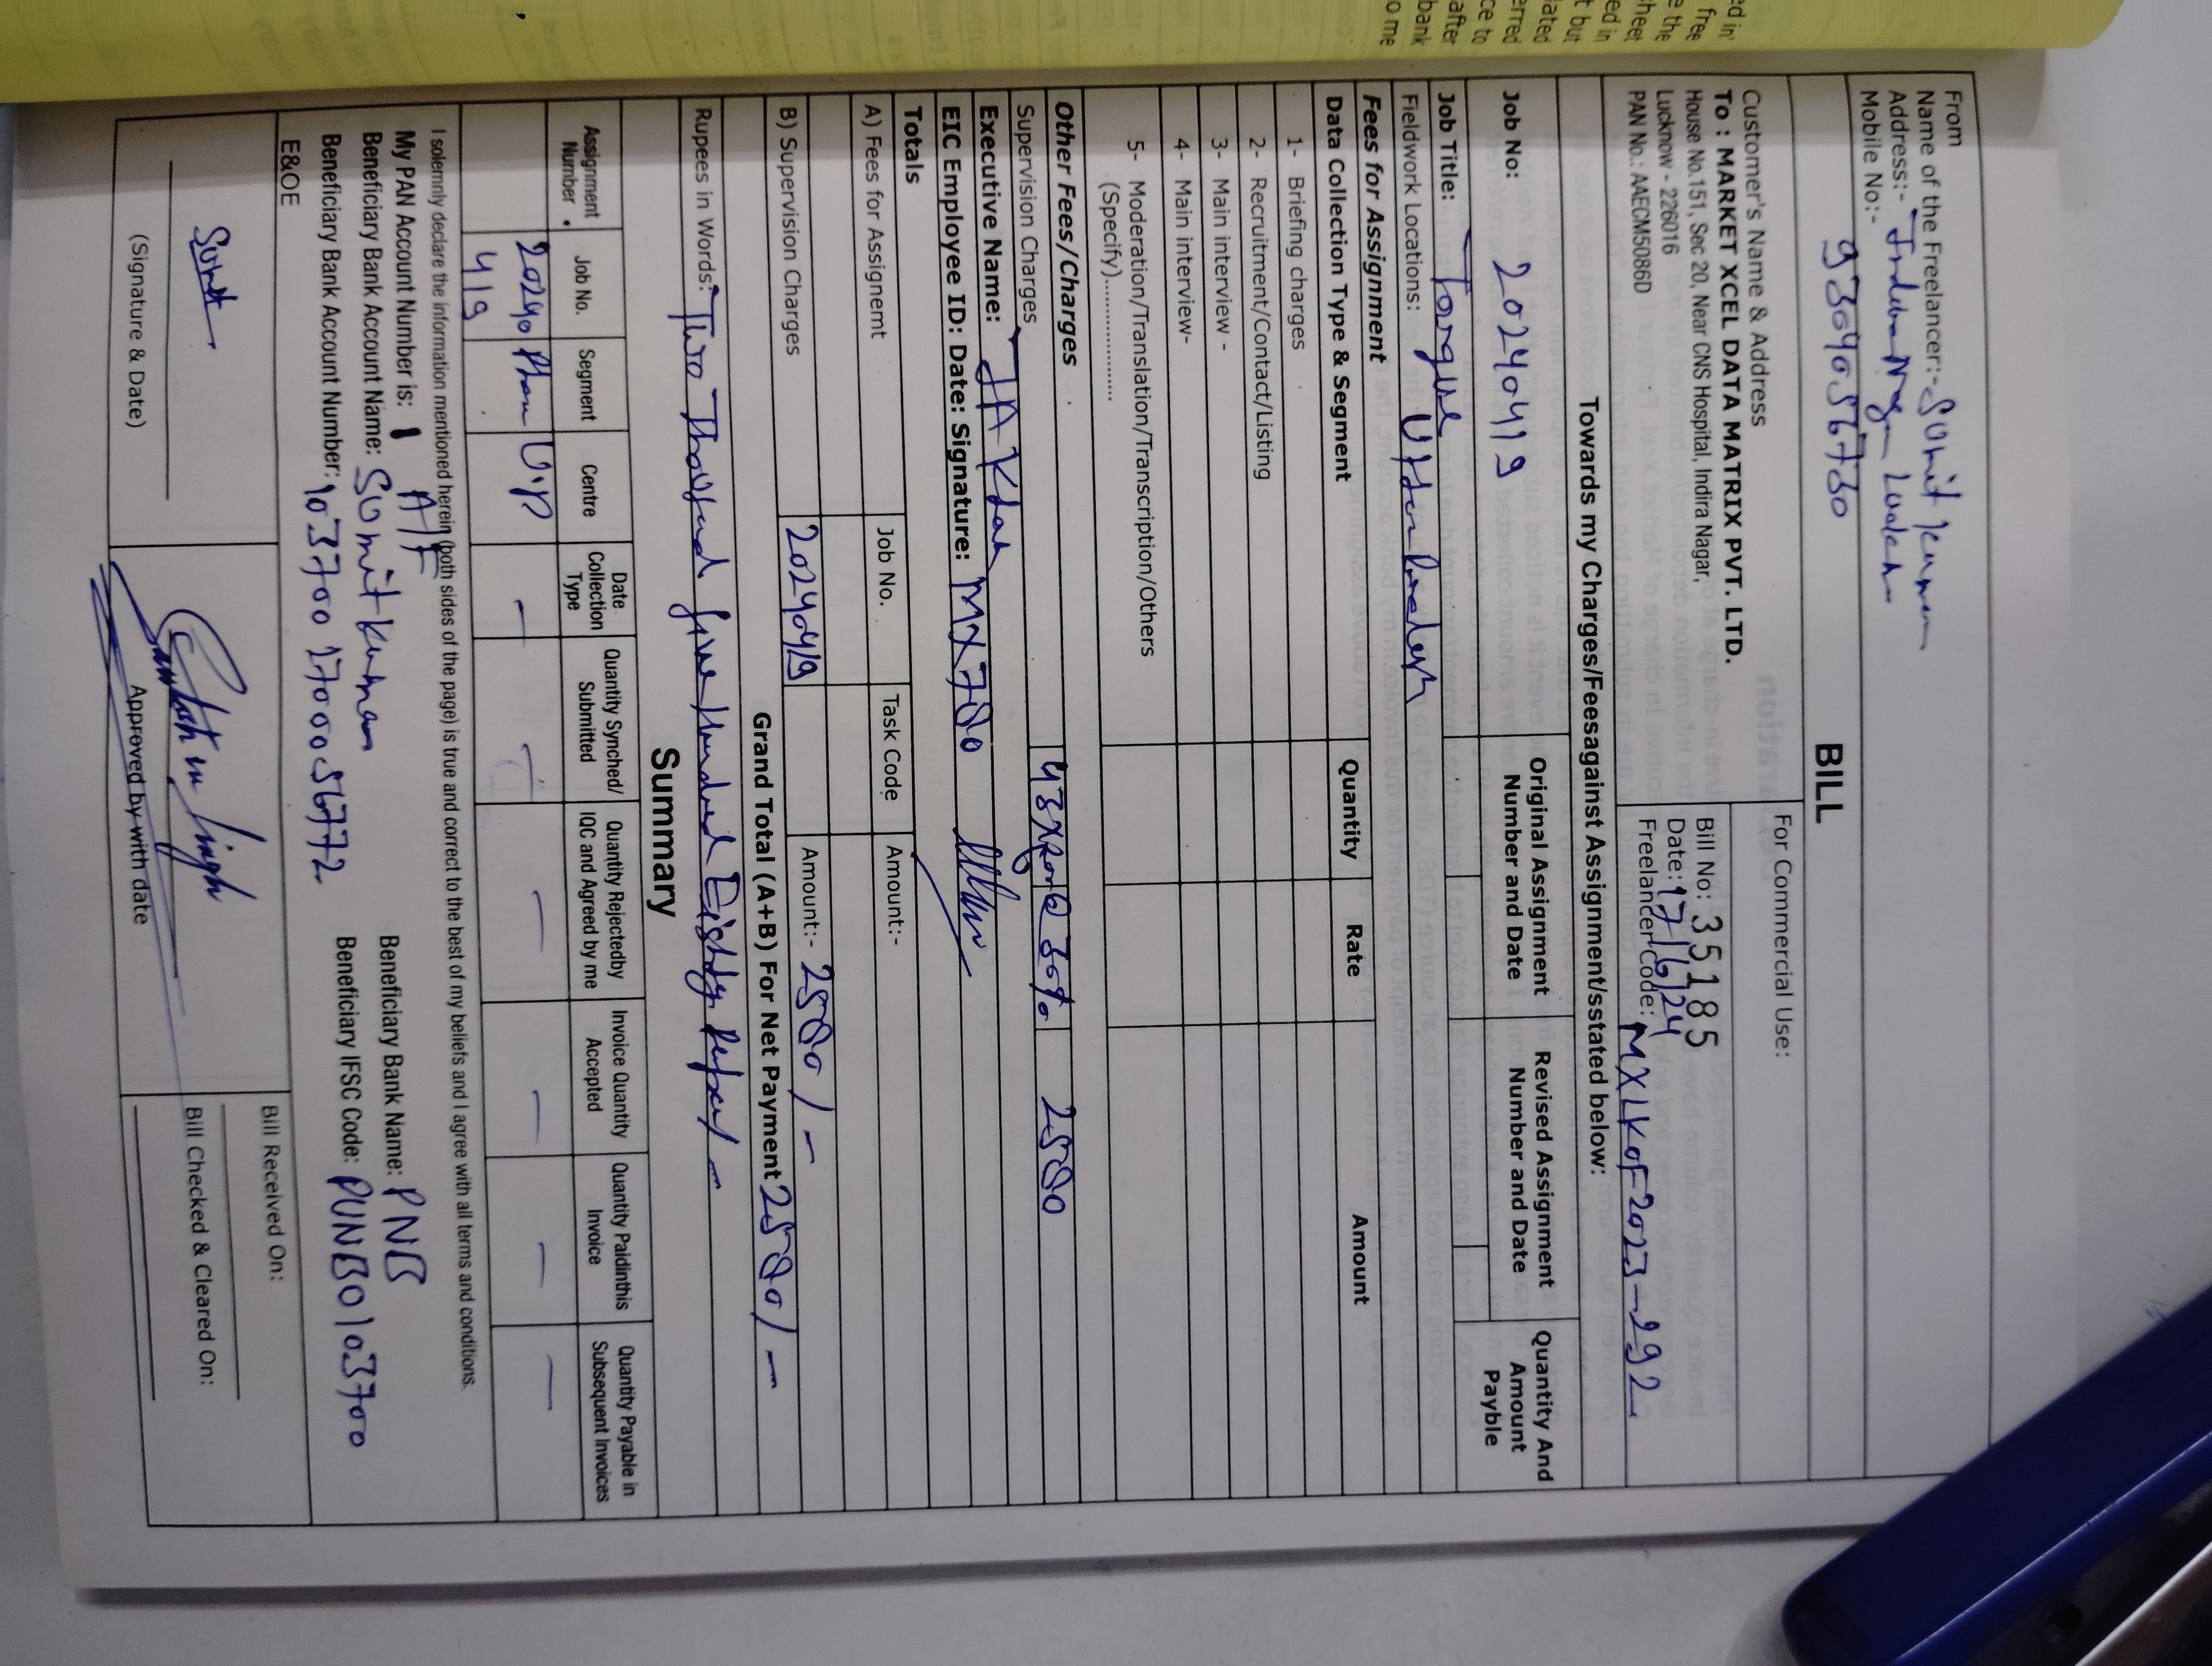 ed in'
free
e the
heet
ed in
t but
lated
erred
ce to
after
bank
o me
From
Name of the Freelancer:- Sumit Kumar
Address:- Indira Nagar Lucknow
Mobile No:- 9369056730
BILL
Customer's Name & Address
For Commercial Use:
To : MARKET XCEL DATA MATRIX PVT. LTD.
House No.151, Sec 20, Near CNS Hospital, Indira Nagar,
Lucknow - 226016
PAN No.: AAECM5086D
Bill No: 35185
Date: 17/6/24
Freelancer Code: MXLKOF2023-292
Towards my Charges/Feesagainst Assignment/sstated below:
Job No: 20240419
Original Assignment Number and Date
Revised Assignment Number and Date
Quantity And Amount Payble
Job Title: Torque
Fieldwork Locations: Uttar Pradesh
Fees for Assignment
Data Collection Type & Segment Quantity Rate Amount
1- Briefing charges
2- Recruitment/Contact/Listing
3- Main interview -
4- Main interview-
5- Moderation/Translation/Transcription/Others
(Specify)..................
Other Fees/Charges
Supervision Charges 30% 2580
Executive Name: JA Khan
EIC Employee ID: Date: Signature: MX780
Totals Job No. Task Code Amount:-
A) Fees for Assignemt
B) Supervision Charges 20240419 Amount:- 2580/-
Grand Total (A+B) For Net Payment 2580/-
Rupees in Words: Two Thousand five Hundred Eighty
Summary
Assignment Number Job No. Segment Centre Date Collection Type Quantity Synched/ Submitted Quantity Rejectedby IQC and Agreed by me Invoice Quantity Accepted Quantity Paidinthis Invoice Quantity Payable in Subsequent Invoices
20240 U.P - - - - - -
419
I solemnly declare the information mentioned herein (both sides of the page) is true and correct to the best of my beliefs and I agree with all terms and conditions.
My PAN Account Number is: A/F
Beneficiary Bank Name: PNB
Beneficiary Bank Account Name: Sumit Kumar
Beneficiary IFSC Code: PUNB0103700
Beneficiary Bank Account Number: 1037001700056772
E&OE
Bill Received On:
Sumit
Bill Checked & Cleared On:
(Signature & Date)
Approved by with date